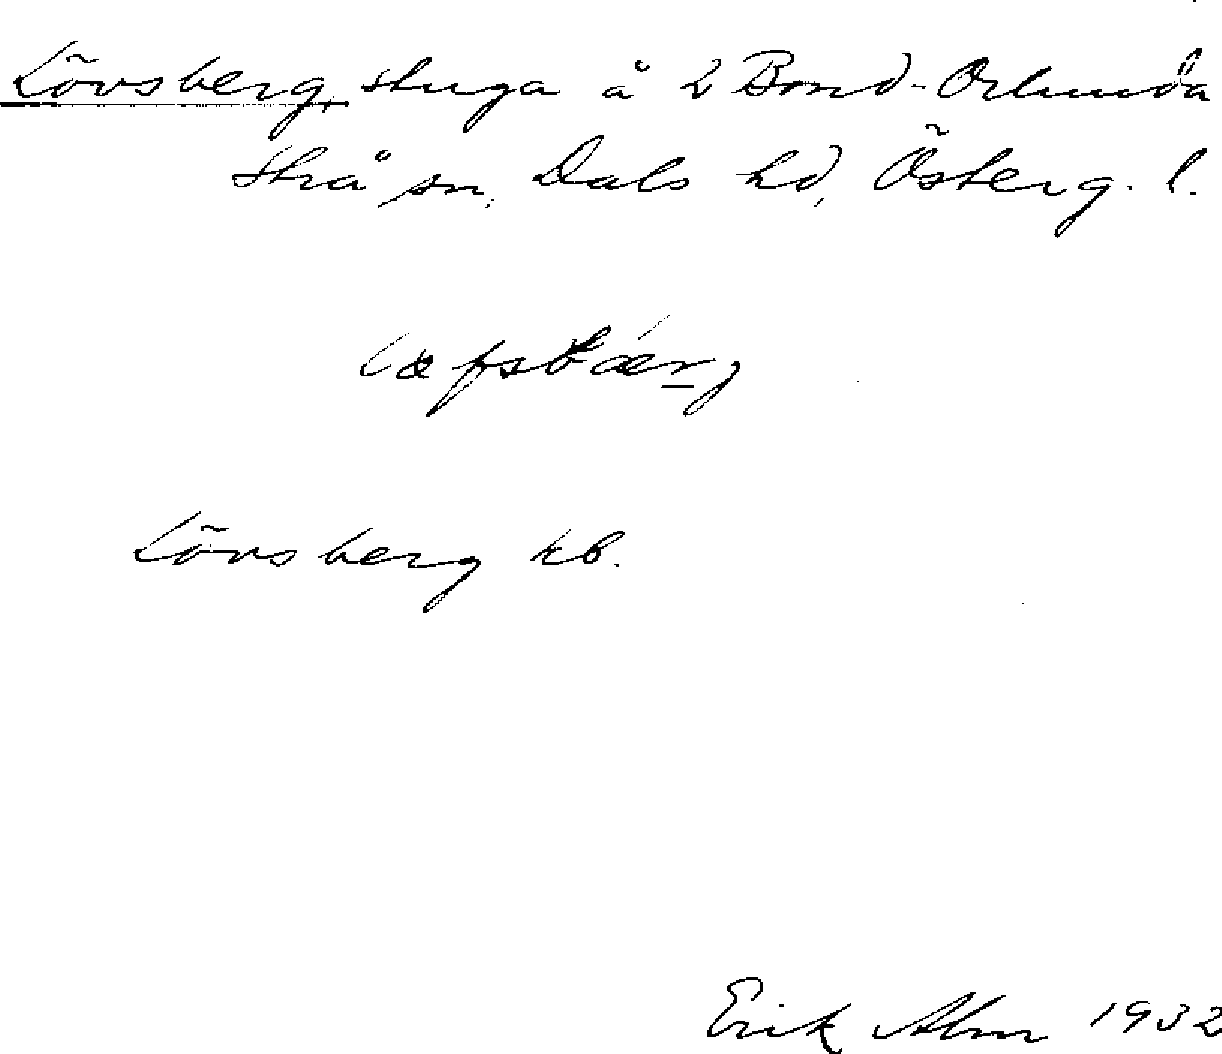 Lövsberg, stuga å 2 Bond-Orlunda
Strå sn, Dals hd, Österg. l.
Lövsberg kb.
Erik Alm 1932